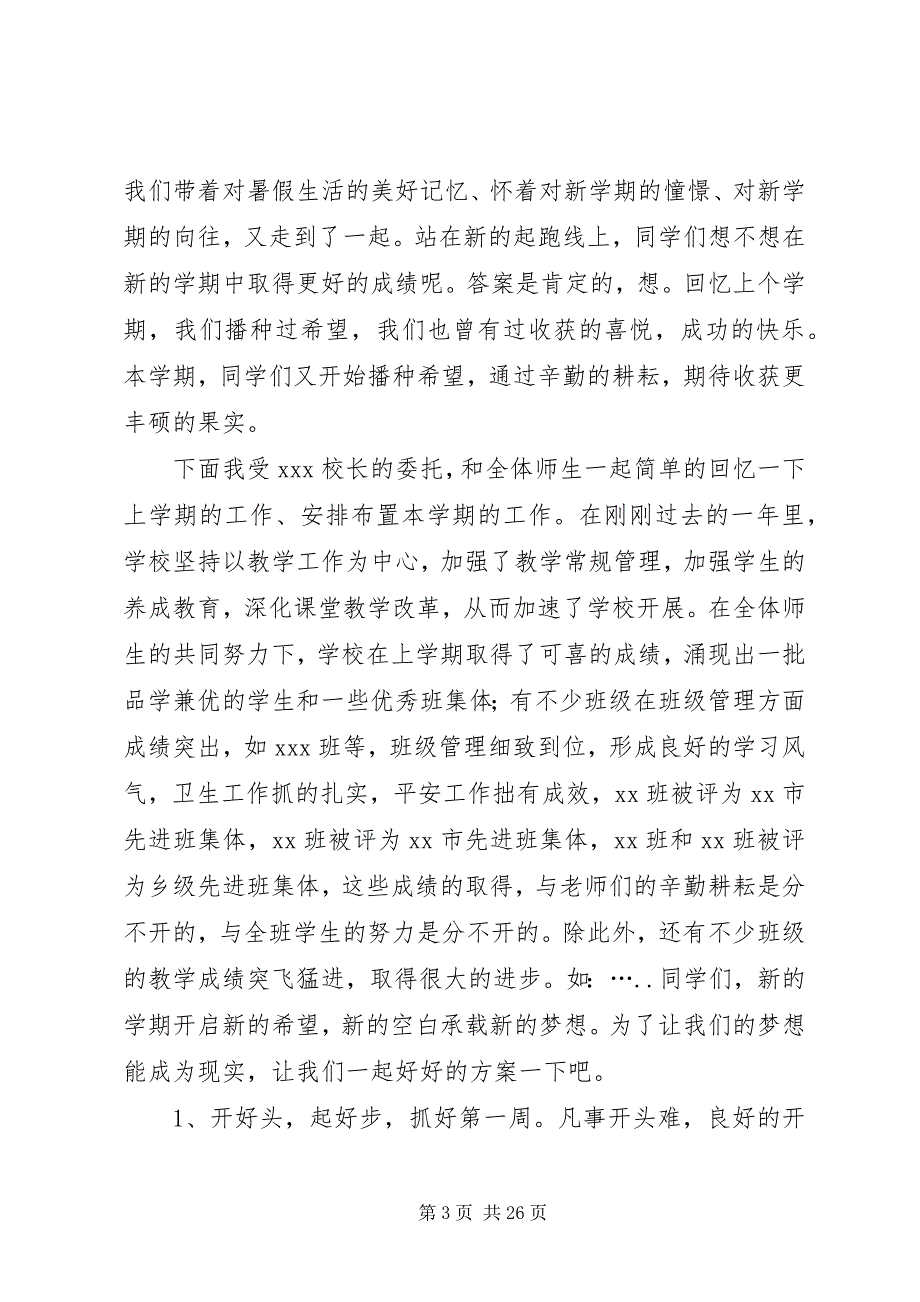 我们带着对暑假生活的美好记忆、怀着对新学期的憧憬、对新学
期的向往，又走到了一起。站在新的起跑线上，同学们想不想在
新的学期中取得更好的成绩呢。答案是肯定的，想。回忆上个学
期，我们播种过希望，我们也曾有过收获的喜悦，成功的快乐。
本学期，同学们又开始播种希望，通过辛勤的耕耘，期待收获更
丰硕的果实。
下面我受 xxx 校长的委托，和全体师生一起简单的回忆一下
上学期的工作、安排布置本学期的工作。在刚刚过去的一年里，
学校坚持以教学工作为中心，加强了教学常规管理，加强学生的
养成教育，深化课堂教学改革，从而加速了学校开展。在全体师
生的共同努力下，学校在上学期取得了可喜的成绩，涌现出一批
品学兼优的学生和一些优秀班集体；有不少班级在班级管理方面
成绩突出，如 xxx 班等，班级管理细致到位，形成良好的学习风
气，卫生工作抓的扎实，平安工作拙有成效，xx 班被评为 xx 市
先进班集体，xx 班被评为 xx 市先进班集体，xx 班和 xx 班被评
为乡级先进班集体，这些成绩的取得，与老师们的辛勤耕耘是分
不开的，与全班学生的努力是分不开的。除此外，还有不少班级
的教学成绩突飞猛进，取得很大的进步。如：…..同学们，新的
学期开启新的希望，新的空白承载新的梦想。为了让我们的梦想
能成为现实，让我们一起好好的方案一下吧。
1、开好头，起好步，抓好第一周。凡事开头难，良好的开
第 3 页 共 26 页